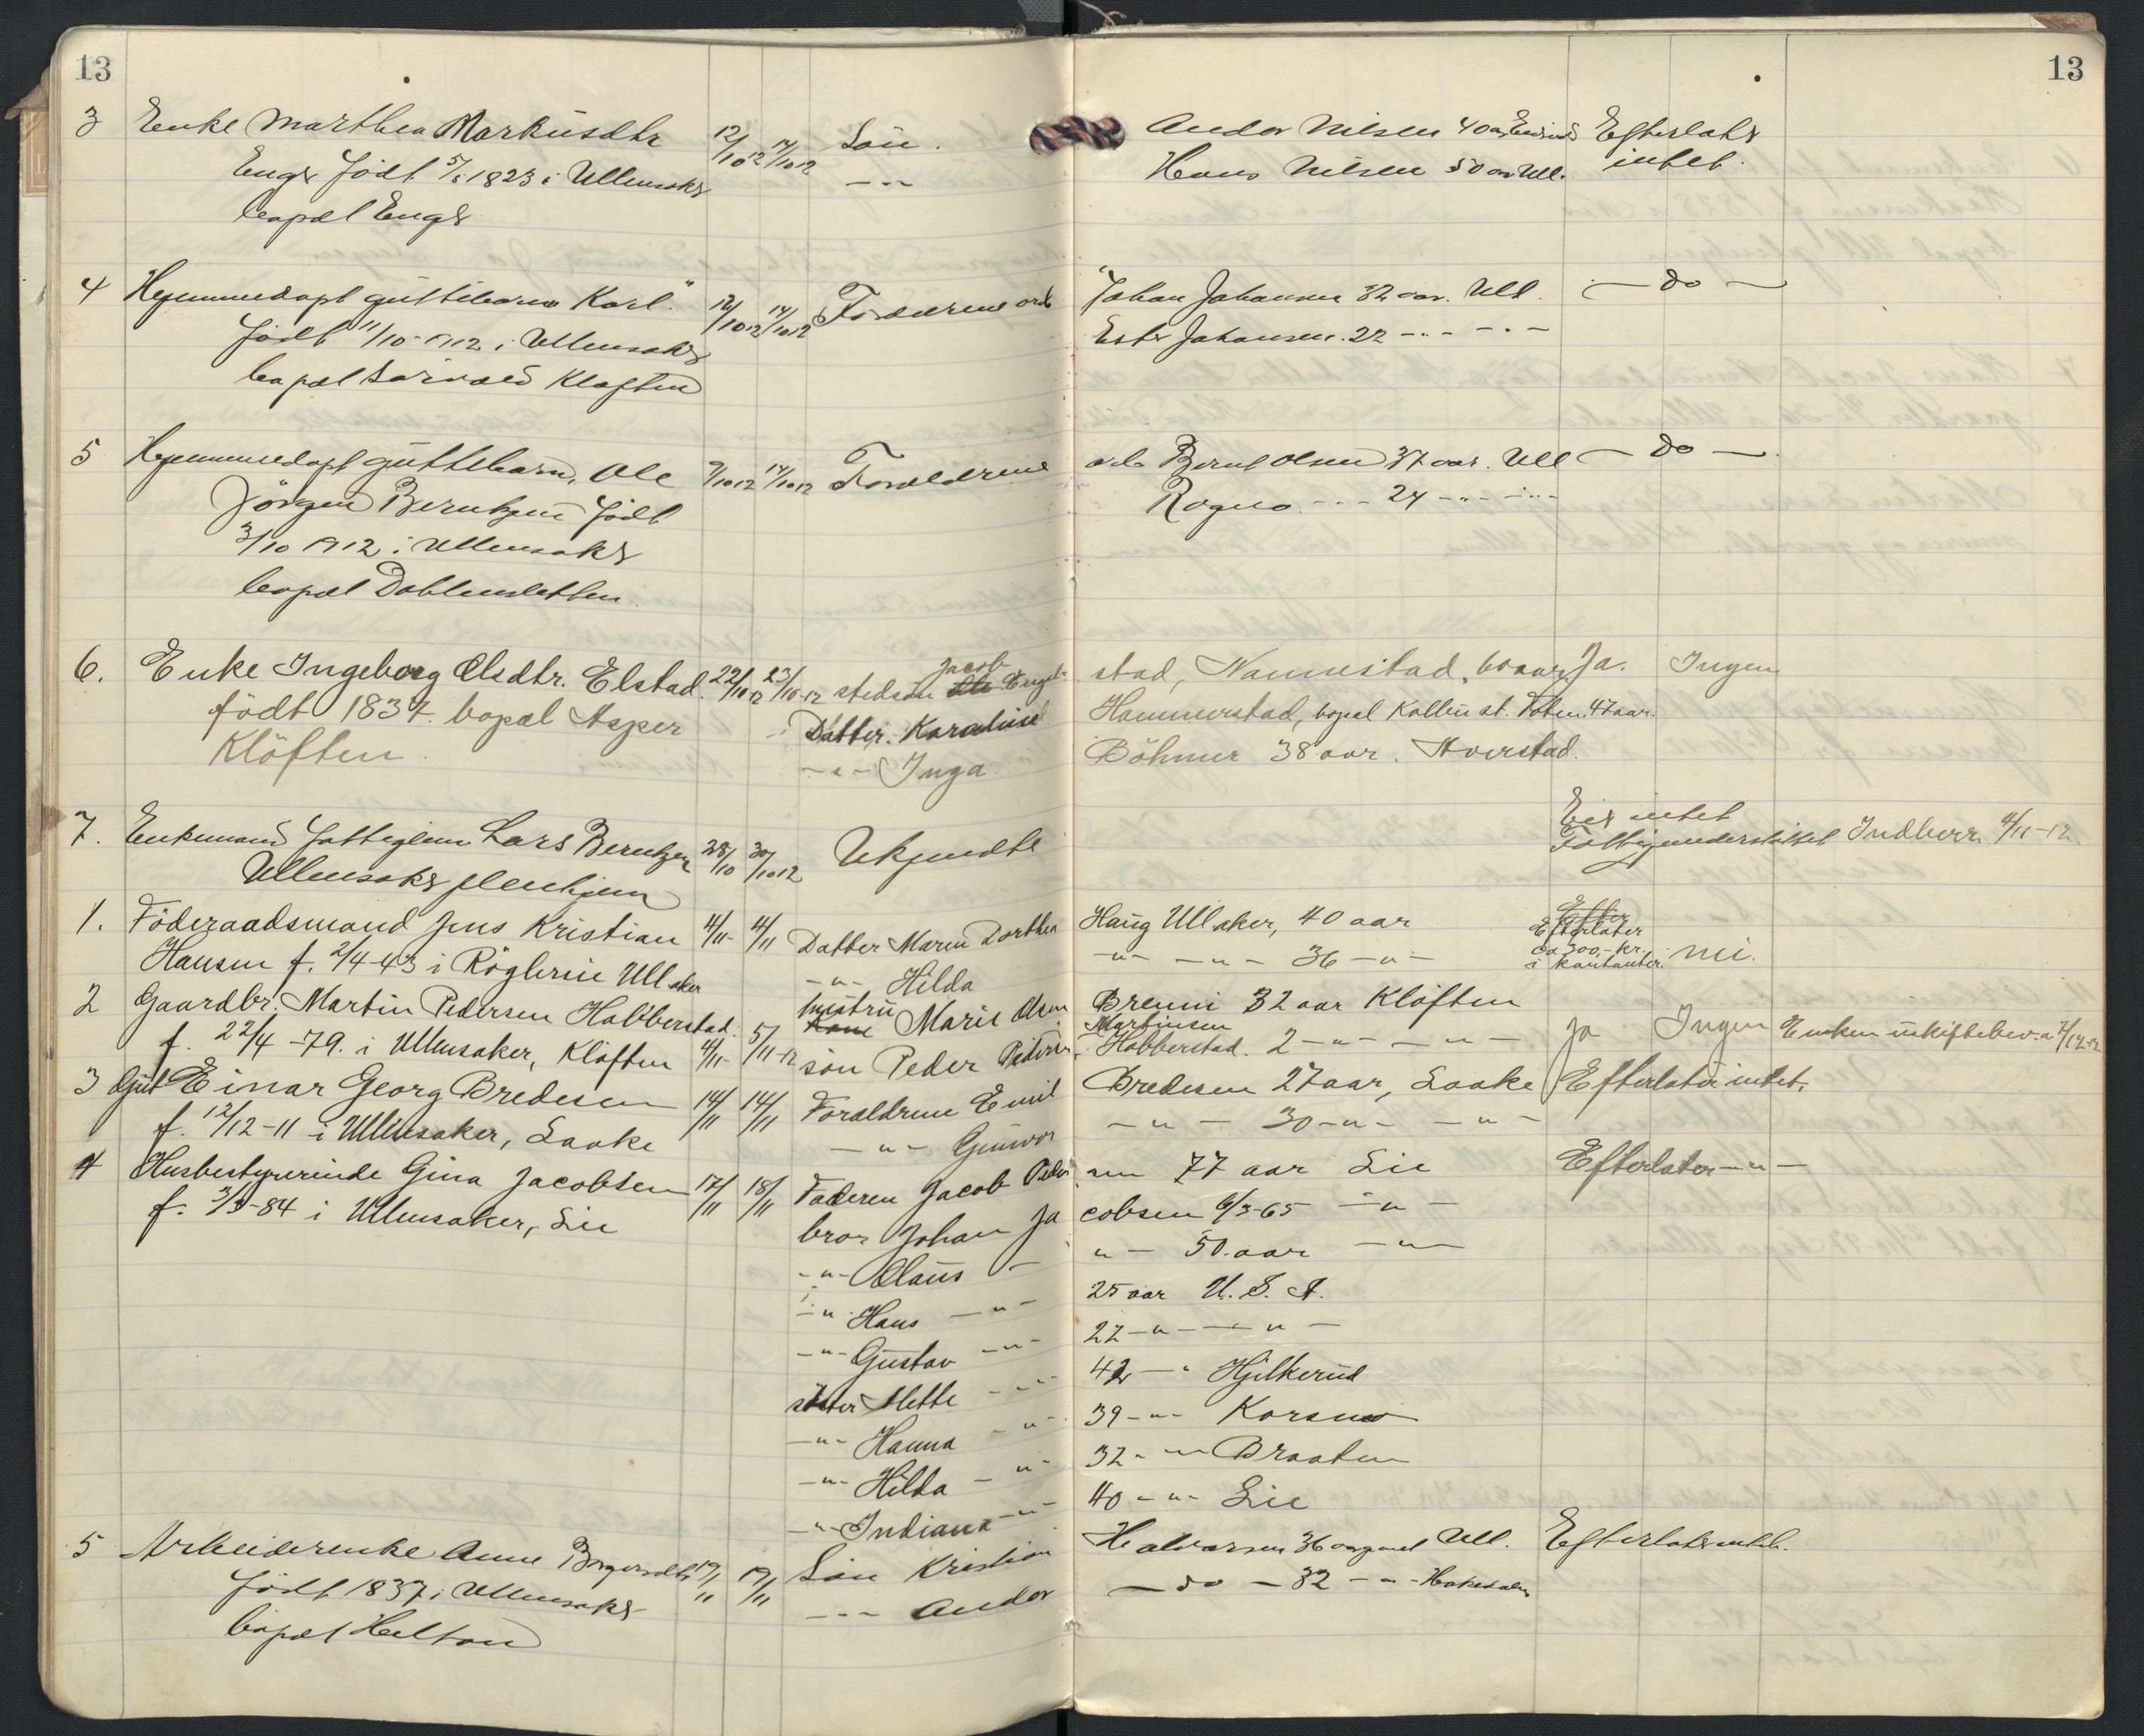 13
13
3 Enke Marthea Markusdtr 12/10 12 14/10 12 Sön. Andor Nilsen 40 aar Efterlater
Enger född 5/5 1823 i Ullensaker — " — Hans Nilsen 50 aar Ull. intet.
bopæl Enger
4 Hjemmedøpt guttebarn "Karl" 12/10 12 14/10 12 Forældrene arb Johan Johansen 32 aar. Ull. — do —
född 11/10 - 1912 i Ullensaker Ester Johansen. 22 — " — — " —
bopæl Kløften
5 Hjemmedøpt guttebarn, Ole 9/10 12 14/10 12 Forældrene arb Bernt Olsen 37 aar. Ull — do —
Jörgen Berntzen född Ragna — " — 24 — " — — " —
3/10 1912 i Ullensaker
bopæl
6. Enke Ingeborg Olsdtr. Elstad. 22/10 12 23/10 - 12 stedsön Jacob Engel- stad, Nannestad, 60 aar Ja. Ingen
födt 1834. bopæl Asper Datter. Karoline Hammerstad, bopæl Kolbu st. Toten. 47 aar.
Klöften. — " — Inga Böhmer 38 aar. Hverstad.
7. Enkemand Fattiglem Lars Berntzen 28/10 30/10 12 Ukjendte Eier intet
Ullensaker pleiehjem Fattigunderstöttet Indberr. 4/11 - 12.
1. Föderaadsmand Jens Kristian 4/11 - 4/11 Datter Maren Dorthea Haug Ullsaker, 40 aar Efterlater
Hansen f. 2/4 - 43 i Röglerie Ullsaker — " — Hilda — " — — " — 36 — " — ca 300,- kr. i kontanter. nei.
2 Gaardbr. Martin Pedersen Habberstad. hustru Marie Olsen Brenni 32 aar Klöften
f. 22/4 - 79. i Ullensaker, Klöften 4/11 - 5/11 - 12 sön Peder Pedersen Martinsen Habberstad. 2 — " — — " — Ja Ingen Enken uskiftebev.
3 Gut Einar Georg Bredesen 14/11 14/11 Foraldrene Emil Bredesen 27 aar, Laake Efterlater intet.
f. 12/12 - 11 i Ullensaker, Laake — " — Gunvor — " — 30 — " — — " —
4 Husbestyrerinde Gina Jacobsen 17/11 18/11 Faderen Jacob Peder sen 77 aar Lie Efterlater — " —
f. 3/3 - 84 i Ullensaker, Lie bror Johan Ja cobsen 6/3 - 65 — " —
— " — Olaus — " — 50. aar — " —
— " — Hans — " — 25 aar U. S. A.
— " — Gustav — " — 22 — " — — " —
söster Mette — " — 42 — " Hjelkerud
— " — Hanna — " — 39 — " — Korsmo
— " — Hilda — " — 32 — " — Braaten
— " — Indiana — " — 40 — " — Lie
5 Arbeiderenke Anne Borgersdtr 17/11 19/11 Sön Kristian Halvorsen 36 aar gammel Ull. Efterlater intet.
född 1837 i Ullensaker — " — Andor — do — 32 — " — Hakedalen
bopæl Helton